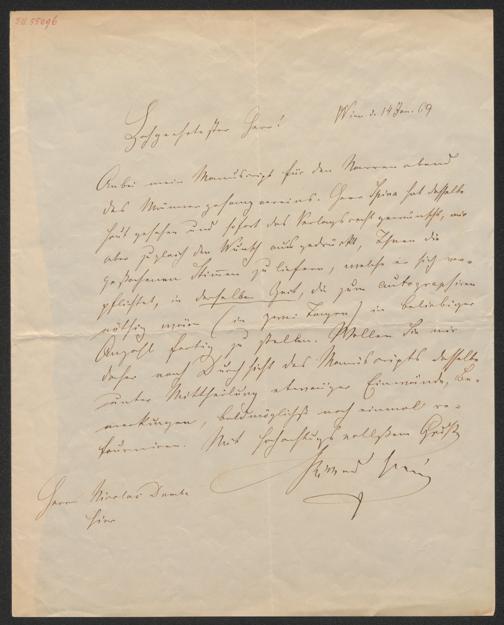 Hochgeehrtester Herr!
Wien d. 14 Jan. 69
Anbei mein Manuscript für den Narrenabend
des Männergesangvereins. Herr Spina hat dasselbe
gesehen und sofort das Verlagsrecht gewünscht, mir
aber zugleich den Wunsch ausgedrückt, Ihnen die
gestochenen Stimmen zu liefern, welche er sich ver-
pflichtet, in derselben Zeit, die zum autographiren
nöthig wären (in zwei Tagen) in beliebiger
Anzahl fertig zu stellen. Wollen Sie mir
daher nach Durchsicht des Manuscripts dasselbe
unter Mittheilung etwaiger Einwände, Be-
merkungen, baldmöglichst noch einmal re-
tourniren. Mit hochachtungsvollstem Gruß
Herrn Nicolaus Dumba
hier